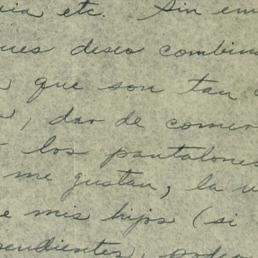 etc. Sin em
ues deseo combina
que son tan
, dar de comer
los pantalones
me gustan, la v
e mis hijos (si
pendientes, poder